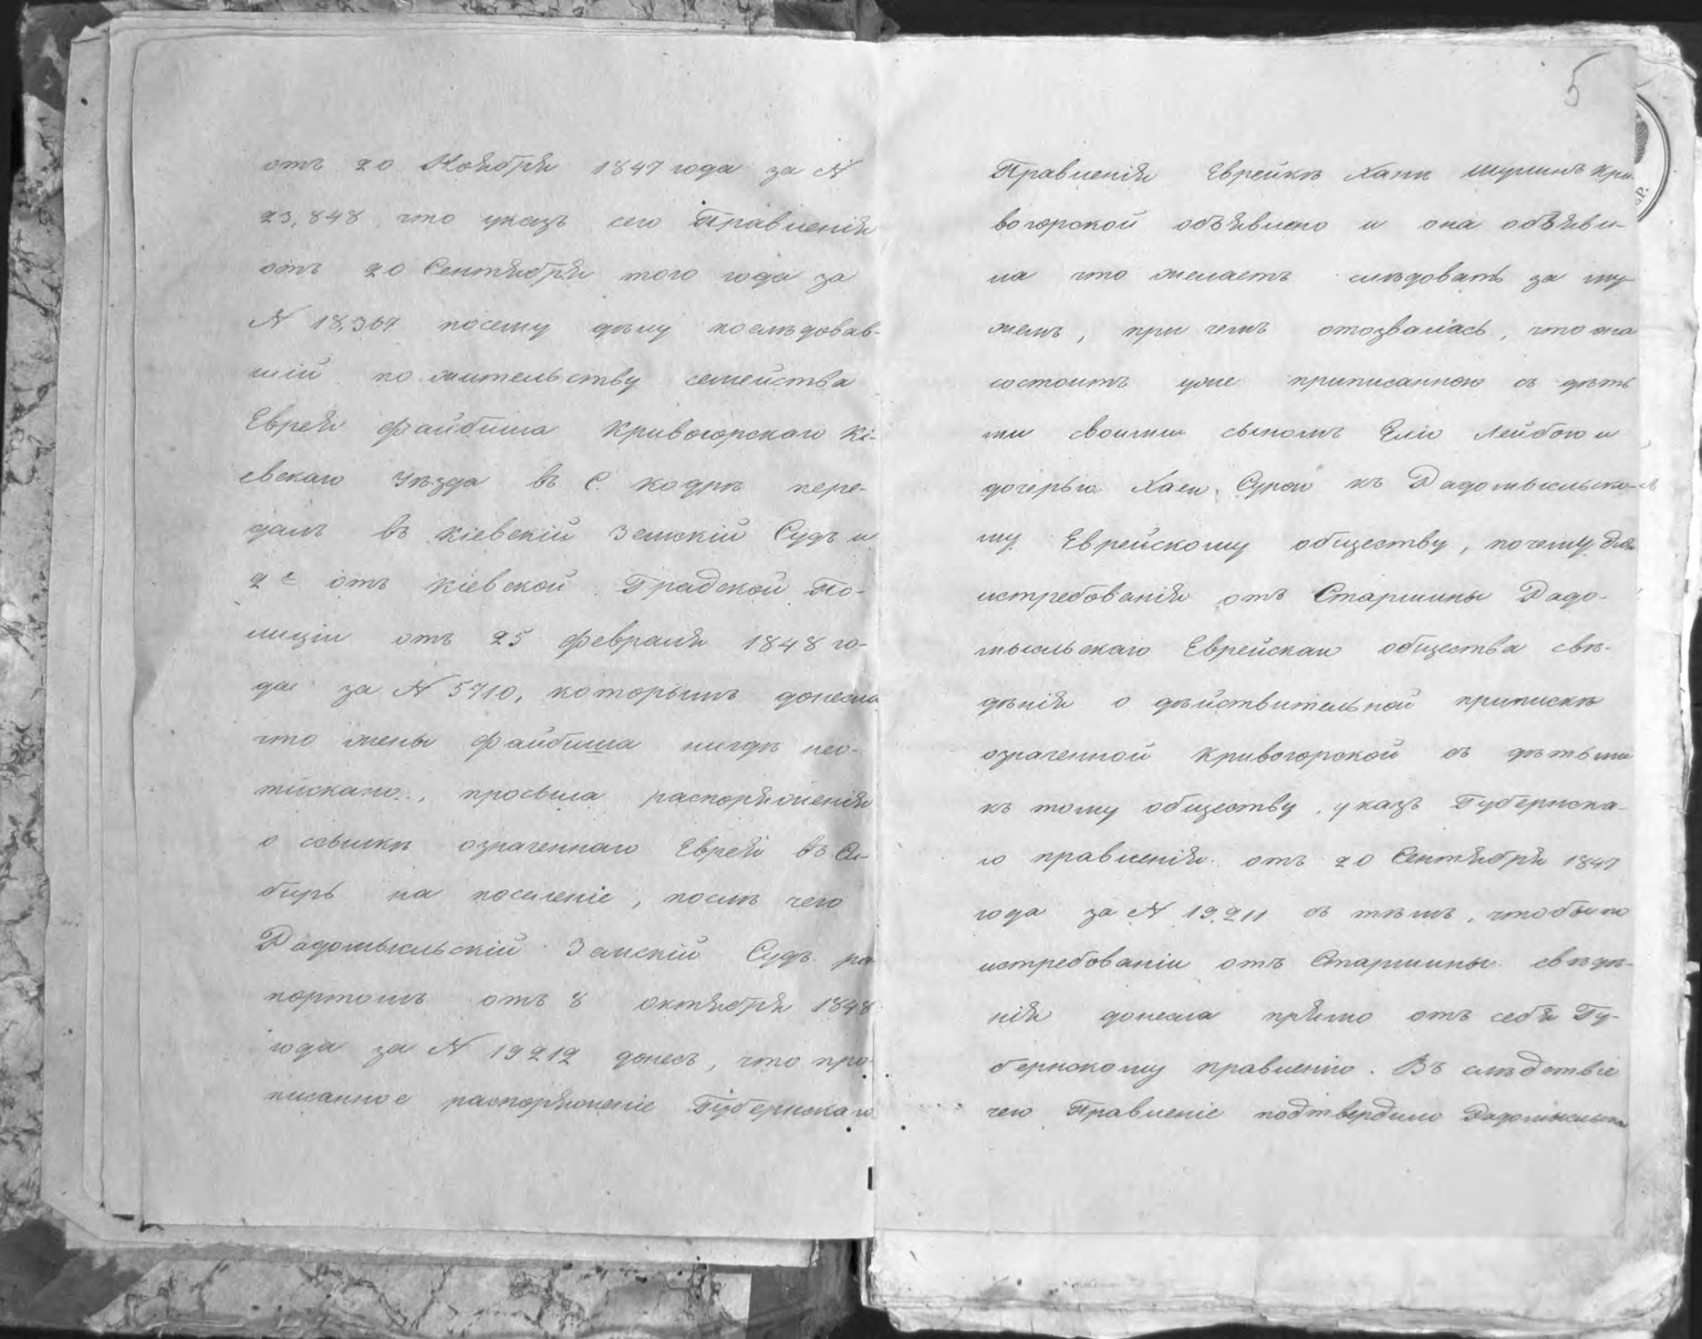 отъ 20 Ноября 1847 года за N
23,848, что указъ сего Правленія
отъ 20 Сентября того года за
N 18,367 посему дѣлу послѣдовав-
шій по жительству семейства
Еврея Файбиша Кривогорскаго Кі-
евскаго Уѣзда въ С. Кодрѣ пере-
данъ въ Кіевскій Земскій Судъ и
2е отъ Кіевской Градской По-
лиціи отъ 25 Февраля 1848 го-
да за N 5710, которымъ донесла
что жены Файбиша нигдѣ нео-
тискано, просила распоряженія
о ссылкѣ означеннаго Еврея въ Си-
бирь на поселеніе, послѣ чего
Радомысльскій Земскій Судъ ра-
портомъ отъ 8 октября 1848
года за N 19212 донесъ, что про-
писанное распоряженіе Губернскаго
5
Правленія Еврейкѣ Ханѣ Кри-
вогорской объявлено и она объяви-
ла что желаетъ слѣдовать за му-
жемъ, при чемъ отозвалась, что она
состоитъ уже приписанною съ дѣть
ми своими сыномъ Еліо Лейбою и
дочерью Хаею Сурою къ Радомысльско-
му Еврейскому обществу, почему для
истребованія отъ Старшины Радо-
мысльскаго Еврейскаго общества свѣ-
дѣнія о дѣйствительной припискѣ
означенной Кривогорской съ дѣтьми
къ тому обществу, указъ Губернска-
го правленія отъ 20 Сентября 1847
года за N 19,211 съ тѣмъ, чтобы по
истребованіи отъ Старшины свѣдѣ-
нія донесла прямо отъ себя Гу-
бернскому правленію. Въ слѣдствіе
чего Правленіе подтвердило Радомысльско